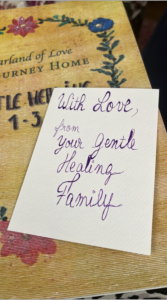 arland of Love
OURNEY HOME
TLE HEALING
1-3
With Love,
from
Your Gentle
Healing
Family